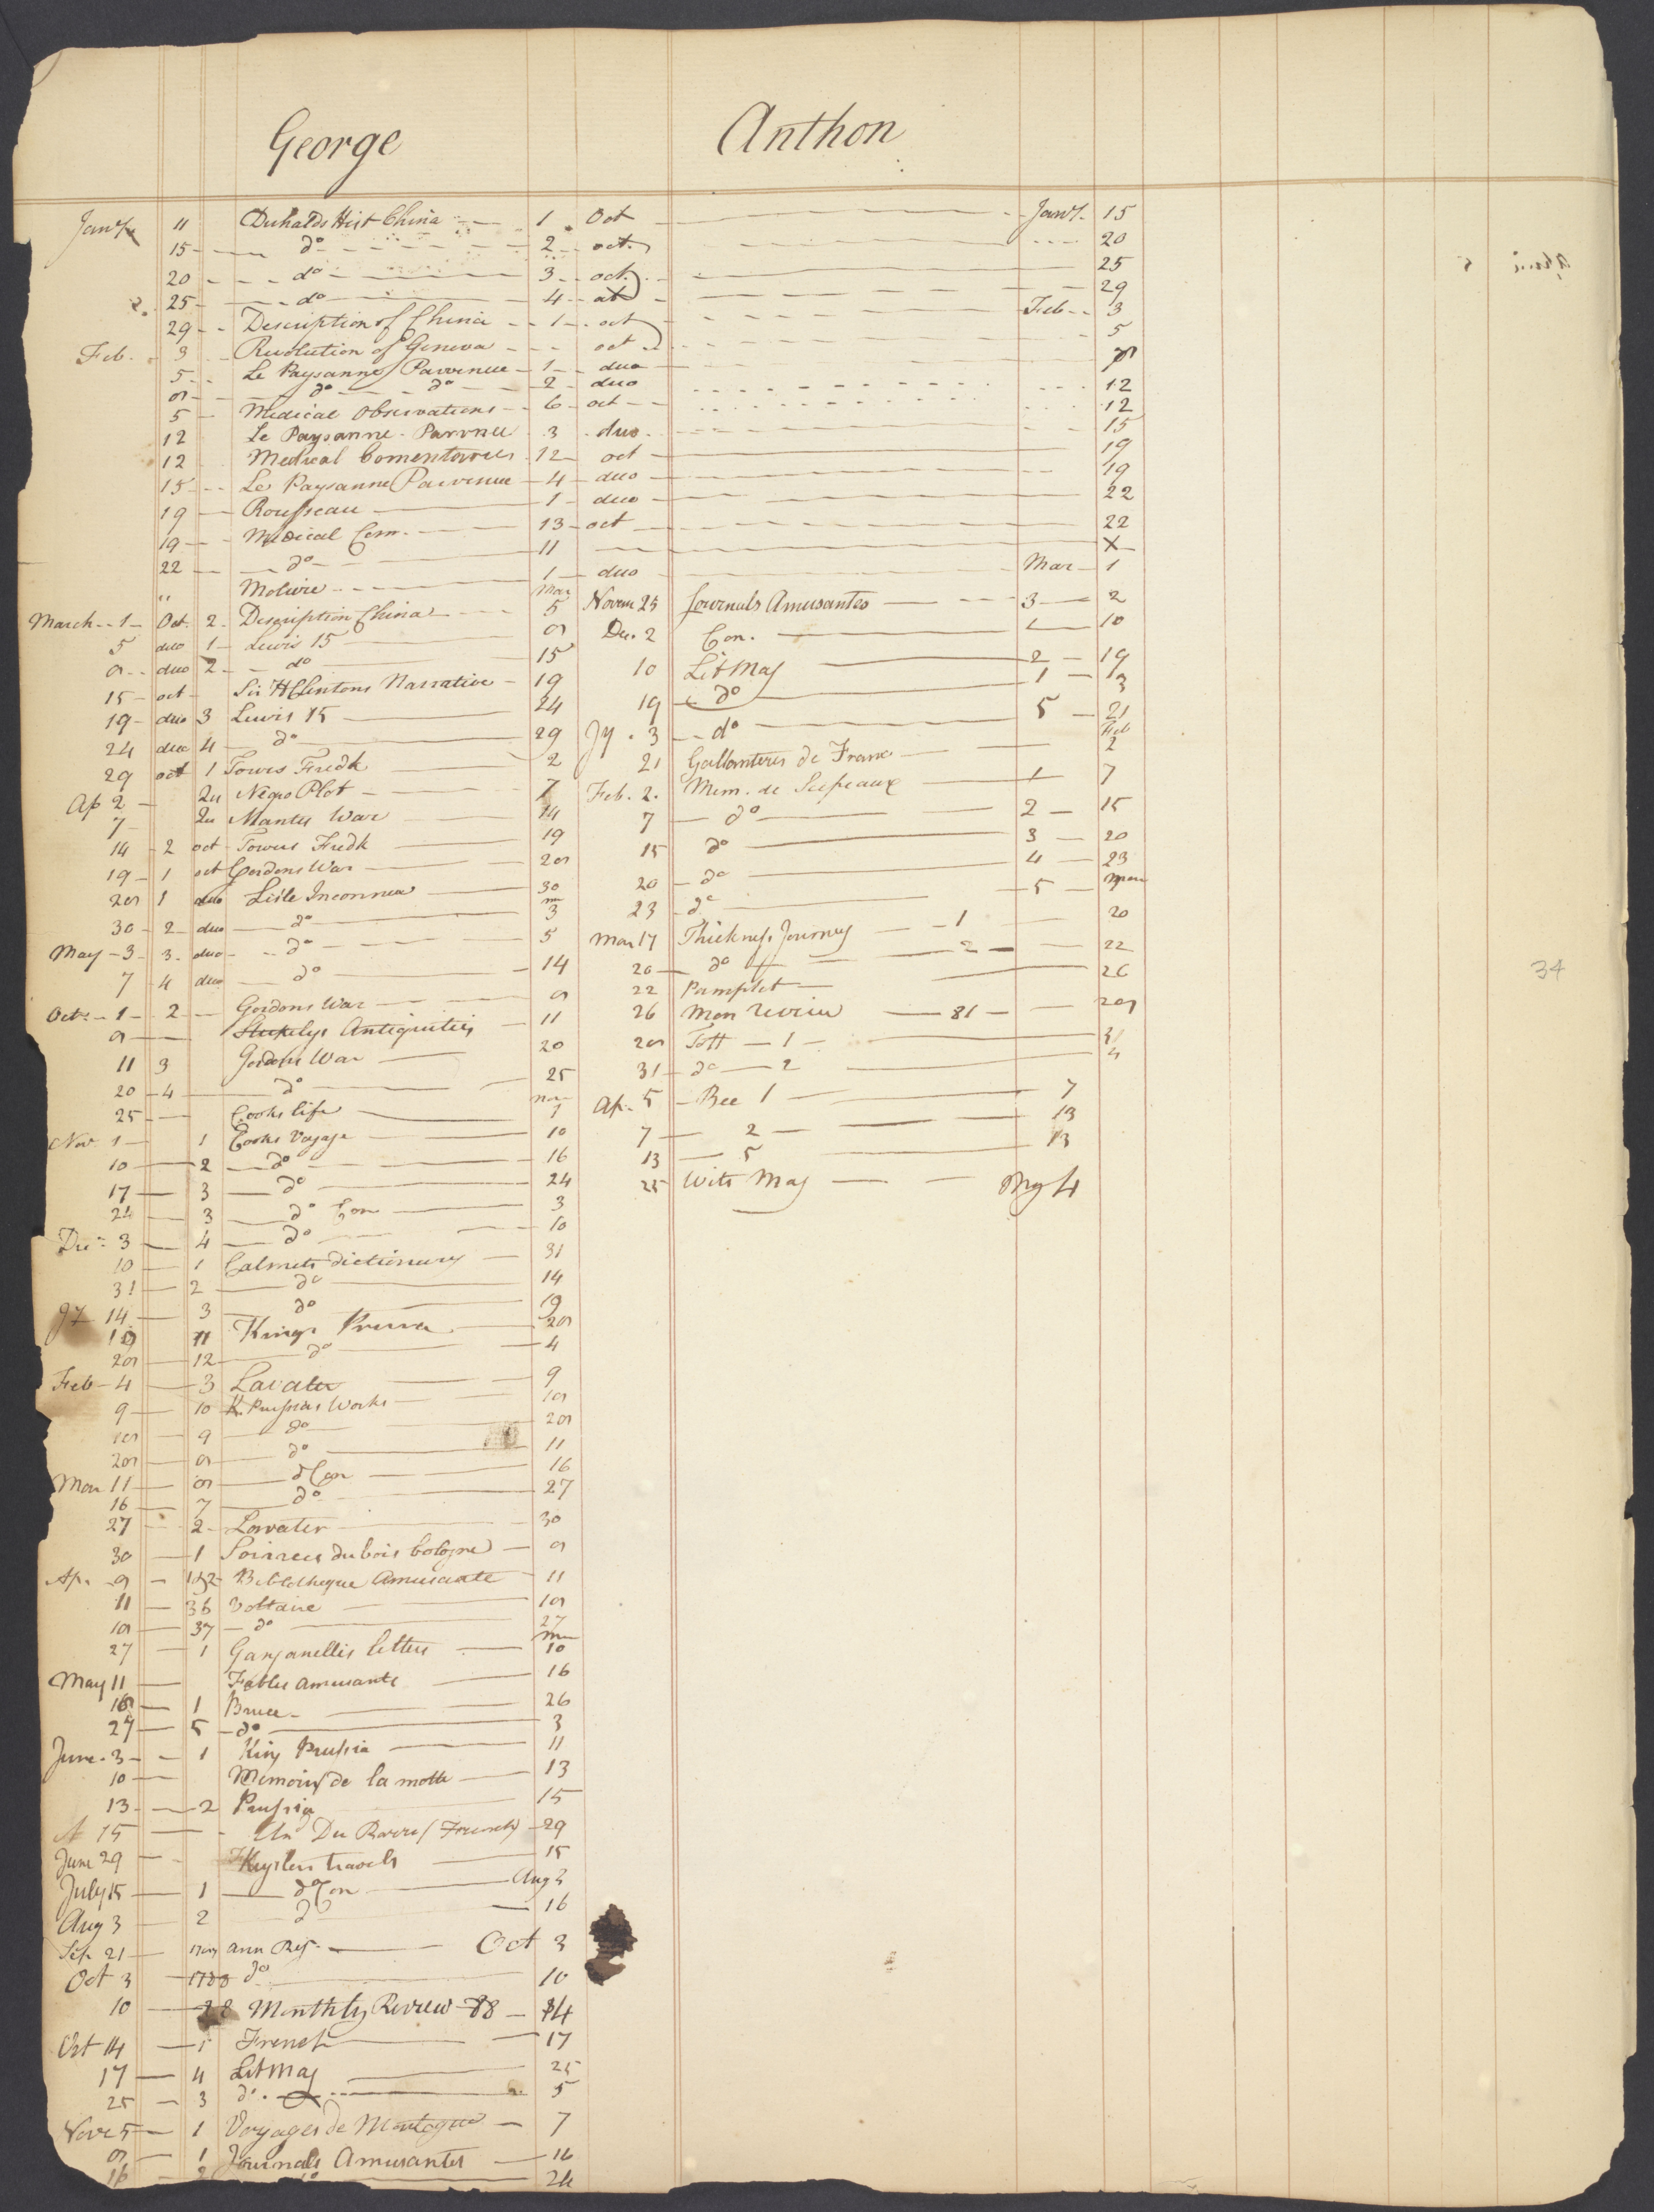 George Anthon
Jany 11 Duhalds Hist China 1 Oct Jany 15
15 do 2 oct 20
20 do 3 oct 25
25 do 4 oct 29
29 Description of China 1 oct Feb 3
Feb. 3 Revolution of Geneva oct 5
5 Le Paysanne Parvenue 1 duo 8
8 do do 2 duo 12
5 Medical Observations 6 oct 12
12 Le Paysanne Parvnue 3 duo 15
12 Medical Comentaries 12 oct 19
15 Le Paysanne Parvenue 4 duo 19
19 Rousseau 1 duo 22
19 Medical Com. 13 oct 22
22 do 11 X
" Moliere 1 duo Mar 1
March 1 Oct. 2 Description China Mar 5
5 duo 1 Lewis 15 8
8 duo 2 do 15
15 oct Sir H Clintons Narrative 19
19 duo 3 Lewis 15 24
24 duo 4 do 29
29 oct 1 Towers Fredk 2
Ap 2 Negro Plot 7
7 Mantes War 14
14 2 oct Towers Fredk 19
19 1 oct Gordons War 28
28 1 duo Lisle Inconnue 30
30 2 duo do 3
May 3 3 duo do 5
7 4 duo do 14
Oct. 1 2 Gordons War 8
8 Stukelys Antiquities 11
11 3 Gordons War 20
20 4 do 25
25 Cooks life Nov 1
Nov 1 1 Cooks Voyage 10
10 2 do 16
17 3 do 24
24 3 do Con 3
Dec 3 4 do 10
10 1 Calmets dictionary 31
31 2 do 14
Jy 14 3 do 19
19 11 Kings Prussia 28
28 12 do 4
Feb 4 3 Lavater 9
9 10 K. Prussias Works 18
18 9 do 28
28 8 do 11
Mar 11 8 do Con 16
16 7 do 27
27 2 Lavater 30
30 1 Soirees du bois bologne 8
Ap. 8 1&2 Bibliotheque Amusante 11
11 36 Voltaire 18
18 37 do 27
27 1 Ganganellis letters 10
May 11 Fables amusante 16
16 1 Bruce 26
27 5 do 3
June 3 1 King Prussia 11
10 Memoirs de la motte 13
13 2 Prussia 15
15 Du Barre (French) 29
June 29 Keyslers travels 15
July 15 1 do Con Aug 3
Aug 3 2 do 16
Sep 21 Ann Reg. Oct 3
Oct 3 1788 do 10
10 Monthly Review 88 14
Oct 14 1 French 17
17 4 Lit Mag 25
25 3 do 5
Nov 5 1 Voyages de Montagne 7
8 1 Journals Amusantes 16
16 2 do 24
Novem 25 Journals Amusantes 3 2
Dec. 2 Con. 10
10 Lit Mag 2 19
19 do 1 3
Jy. 3 do 5 21
21 Gallanteries de France Feb 2
Feb. 2. Mem. de Scepeaux 1 7
7 do 2 15
15 do 3 20
20 do 4 23
23 do 5 Mar
Mar 17 Thickness Journey 1 20
20 do 2 22
22 Pamphlet 26
26 Mon review 81 28
28 Tott 1 31
31 do 2
Ap. 5 Bee 1 7
7 2 13
13 5 13
25 Wits Mag My 4
34